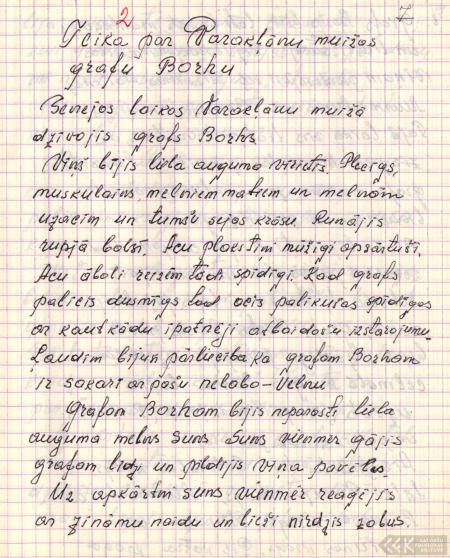 2
7
Teika par Varakļānu muižas
grafu Borhu
Senejos laikos Varakļānu muižā
dzīvojis grafs Borhs
Viņš bijis liela auguma vīrietis. Plecīgs,
muskulains, melniem matiem un melnām
uzacīm un tumšu sejas krāsu. Runājis
rupjā balsī. Acu plakstiņi mūžīgi apsārtuši.
Acu āboli reizēm tādi spīdīgi. Kad grafs
palicis dusmīgs tad acis palikušas spīdīgas
ar kautkādu īpatnēji atbaidošu izstarojumu.
Ļaudīm bijusi pārliecība ka grafam Borham
ir sakari ar pašu nelabo-Velnu
Grafam Borham bijis neparasti liela
auguma melns suns. Suns vienmēr gājis
grafam līdz un pildījis viņa pavēles.
Uz apkārtni suns vienmēr reaģējis
ar zināmu naidu un bieži ņirdzis zobus.
LATVIEŠU
FOLKLORAS
KRĀTUVE